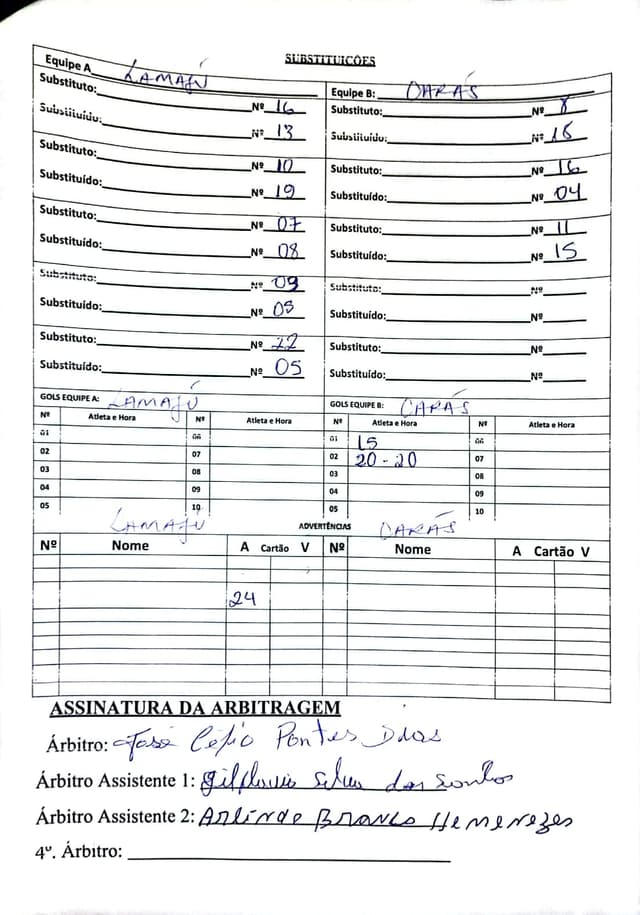 SUBSTITUIÇÕES
Equipe A LAMAJÚ
Substituto: Nº 16
Substituído: Nº 13
Substituto: Nº 10
Substituído: Nº 19
Substituto: Nº 07
Substituído: Nº 08
Substituto: Nº 09
Substituído: Nº 05
Substituto: Nº 22
Substituído: Nº 05
Equipe B: CARÁS
Substituto: Nº 8
Substituído: Nº 16
Substituto: Nº 16
Substituído: Nº 04
Substituto: Nº 11
Substituído: Nº 15
Substituto: Nº
Substituído: Nº
Substituto: Nº
Substituído: Nº
GOLS EQUIPE A: LAMAJÚ
Nº Atleta e Hora Nº Atleta e Hora
01 06
02 07
03 08
04 09
05 10
GOLS EQUIPE B: CARÁS
Nº Atleta e Hora Nº Atleta e Hora
01 15 06
02 20-20 07
03 08
04 09
05 10
LAMAJÚ ADVERTÊNCIAS CARÁS
Nº Nome A Cartão V Nº Nome A Cartão V
24
ASSINATURA DA ARBITRAGEM
Árbitro: José Célio Pontes Dias
Árbitro Assistente 1: Silva dos Santos
Árbitro Assistente 2: Arlindo Branco Menezes
4º. Árbitro: